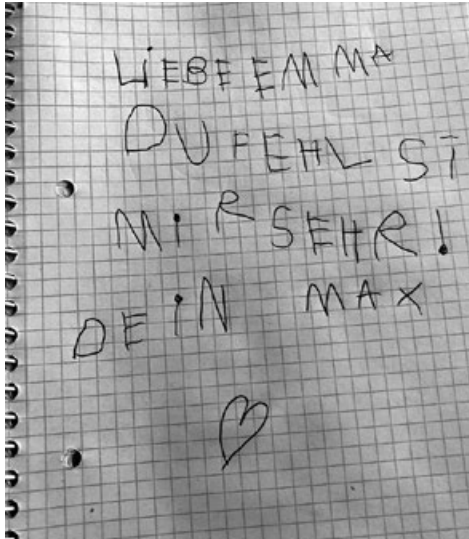 LiEBE EMMA
DU FEHLST
MiR SEHR!
DEiN MAX